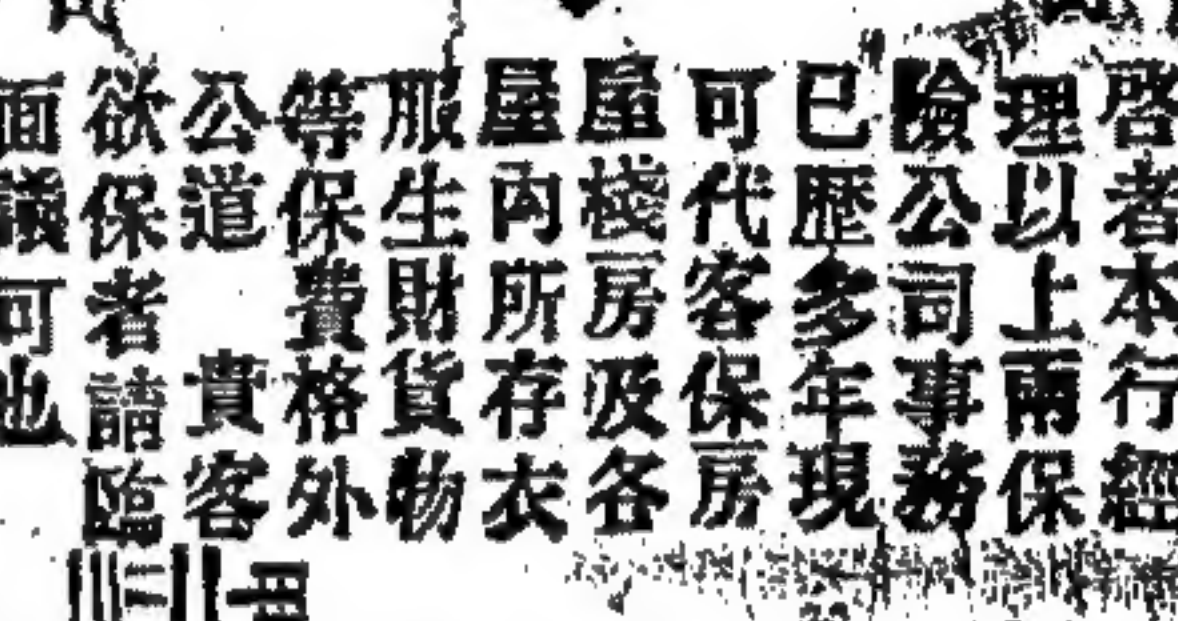 啓者本行經
理以上兩保
險公司事務
已歷多年現
可代客保房
屋棧房及各
屋內所存衣
服生財貨物
等保費格外
公道　貴客
欲保者請臨
面議可也